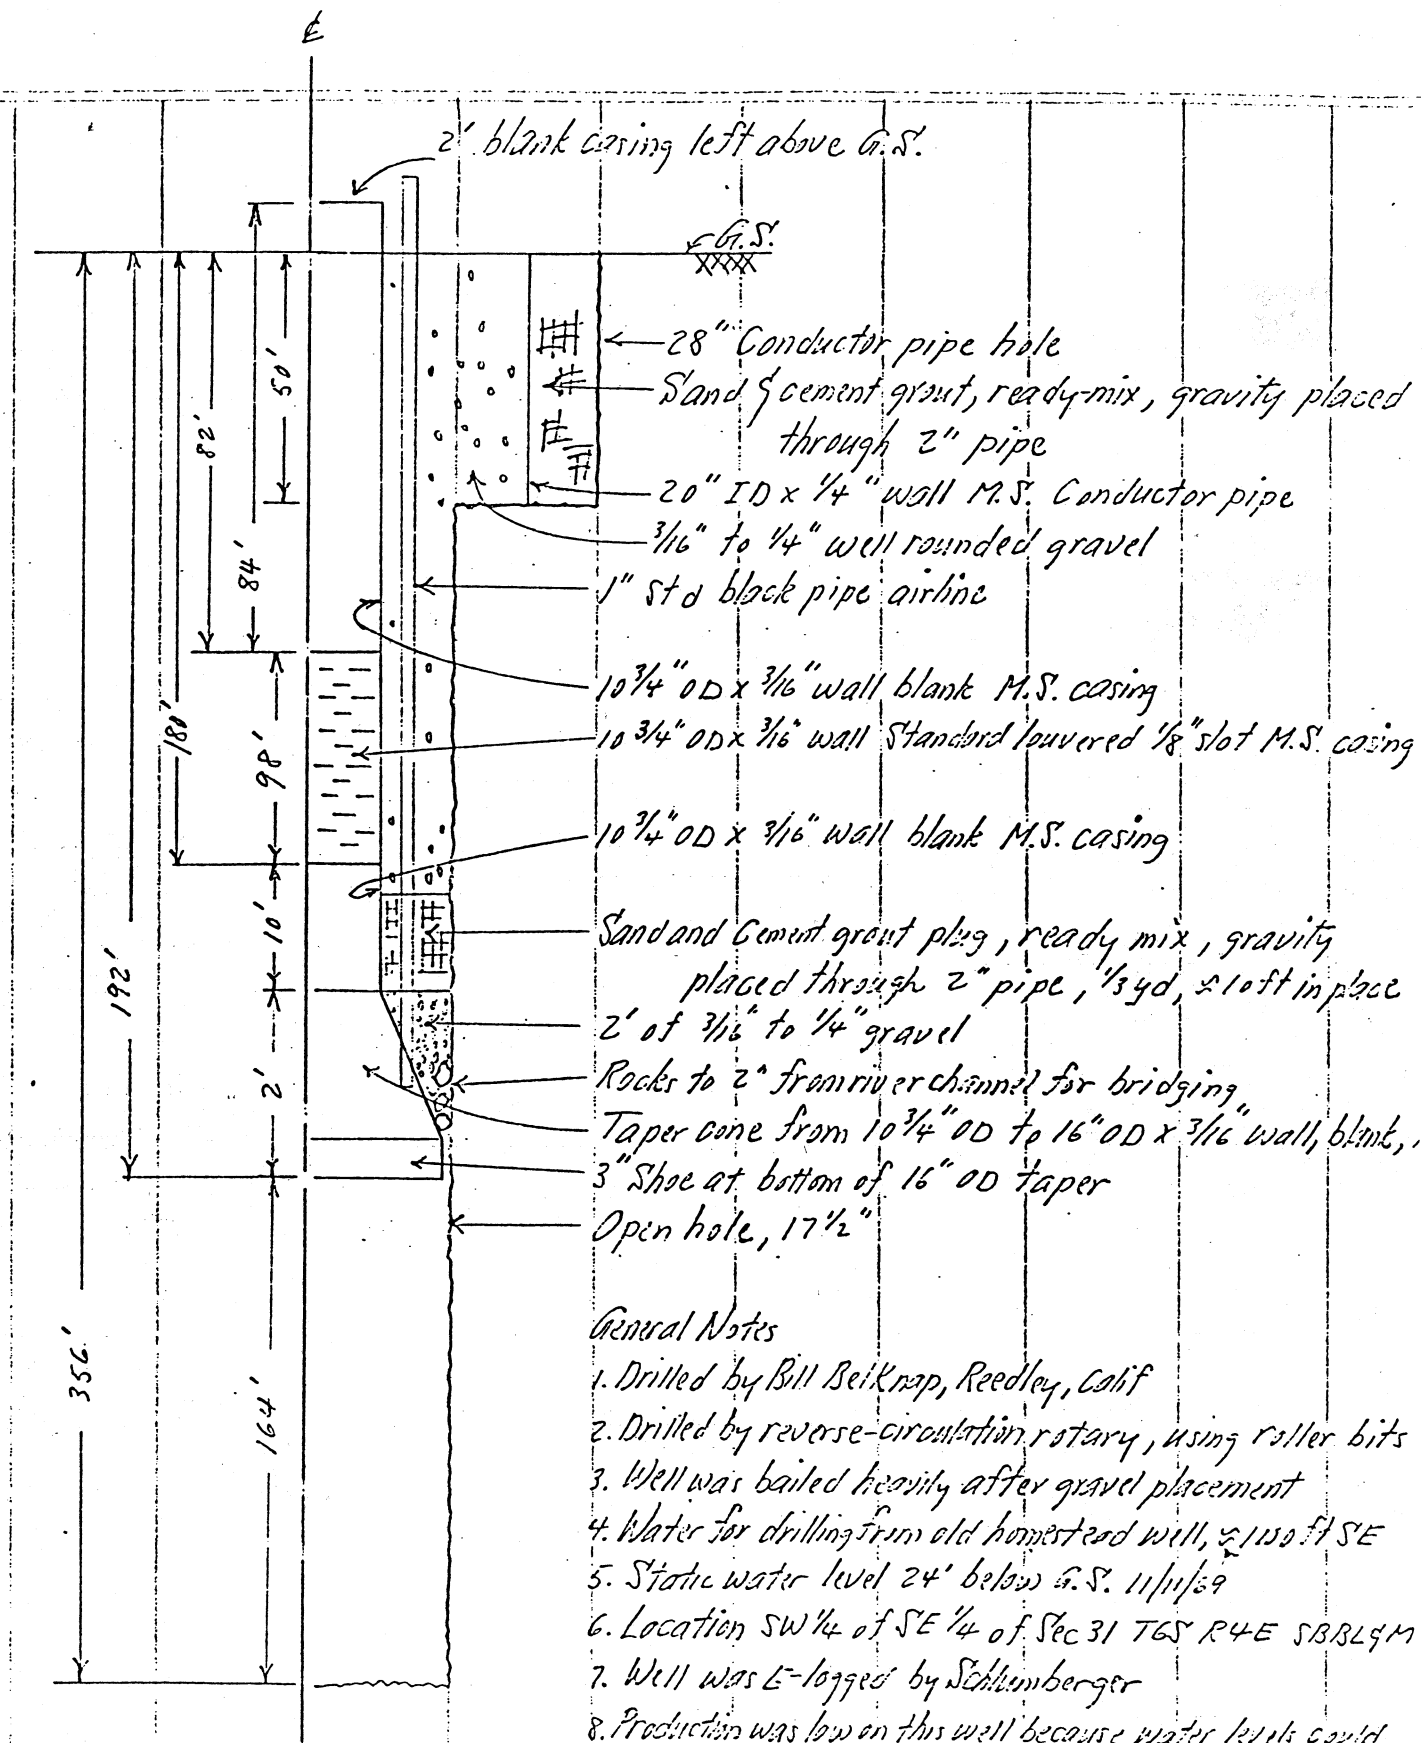 ℄
2' blank casing left above G.S.
G.S.
28" Conductor pipe hole
Sand & cement grout, ready-mix, gravity placed
through 2" pipe
20" ID x 1/4" wall M.S. Conductor pipe
3/16" to 1/4" well rounded gravel
1" Std black pipe airline
10 3/4" OD x 3/16" wall blank M.S. casing
10 3/4" OD x 3/16" wall Standard louvered 1/8" slot M.S. casing
10 3/4" OD x 3/16" wall blank M.S. casing
Sand and Cement grout plug, ready mix, gravity
placed through 2" pipe, 1/3 yd, ≈ 10 ft in place
2' of 3/16" to 1/4" gravel
Rocks to 2" from river channel for bridging
Taper cone from 10 3/4" OD to 16" OD x 3/16" wall, blank,
3" Shoe at bottom of 16" OD taper
Open hole, 17 1/2"
50'
82'
84'
180'
98'
10'
192'
2'
356'
164'
General Notes
1. Drilled by Bill Belknap, Reedley, Calif
2. Drilled by reverse-circulation rotary, using roller bits
3. Well was bailed heavily after gravel placement
4. Water for drilling from old homestead well, ≈ ft SE
5. Static water level 24' below G.S.
6. Location SW 1/4 of SE 1/4 of Sec 31 T6S R4E SBBL&M
7. Well was E-logged by Schlumberger
8. Production was low on this well because water levels could